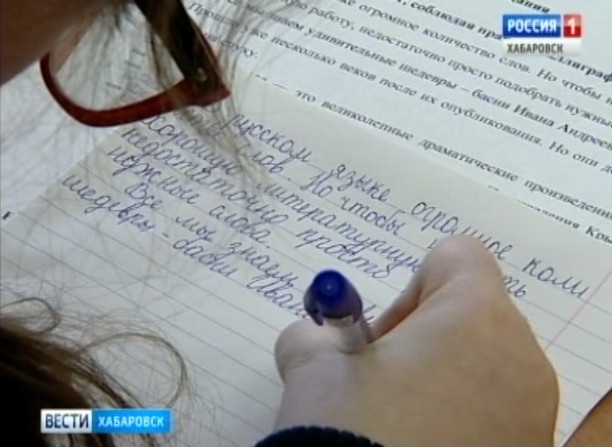 РОССИЯ 1
ХАБАРОВСК
соблюдая
огромное количество слов. Но чтобы
работу, недостаточно просто подобрать нужны
знаем удивительные шедевры – басни Ивана Андрее
же несколько веков после их опубликования. Но они д
это великолепные драматические произведен
русском языке огромное коли
слов. Но чтобы
хорошую литературную
недостаточно просто
нужные слова.
Все мы знаем
шедевры – басни Ивана
ВЕСТИ ХАБАРОВСК